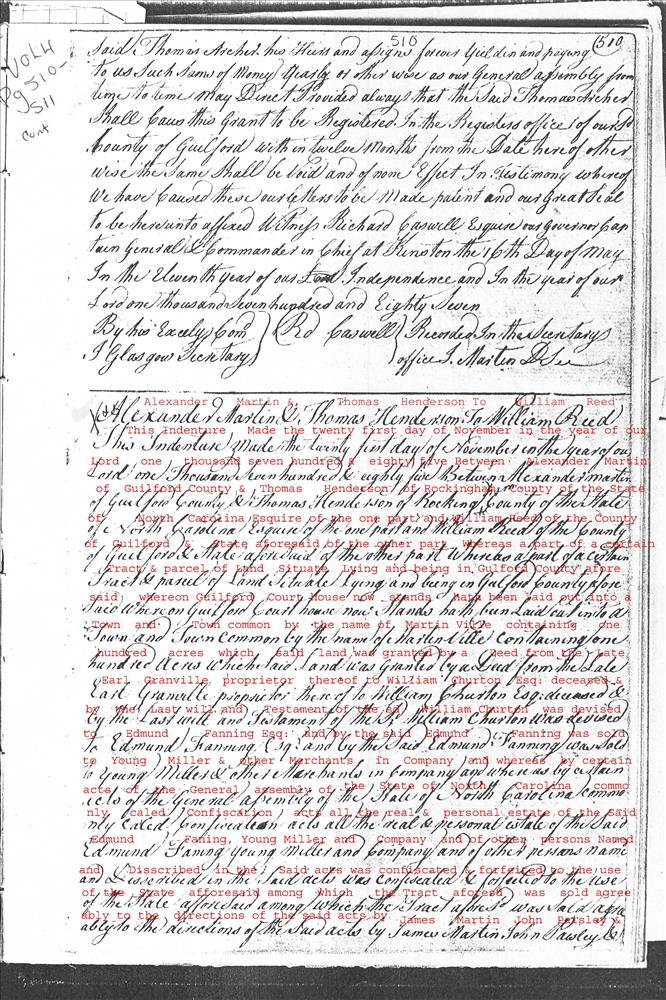 Vol 4
Pg 510-
511
cont
510
510
Said Thomas Archer his Heirs and assigns forever Yieldin and paying
to us Such Sums of Money Yearly or other wise as our General assembly from
time to time may Direct Provided always that the Said Thomas Archer
Shall Caus this Grant to be Registered In the Registers office of our Sd
County of Guilford with in twelve Months from the Date hereof other
wise the Same Shall be Void and of none Effect In Testimony whereof
We have Caused these our letters to be Made patent and our Great Seal
to be hereinto affixed Witness Richard Caswell Esquire our Governor Cap
tain General & Commander in Chief at Kinston the 16th Day of May
In the Eleventh year of our Independence and In the year of our
Lord one thousand Seven hundred and Eighty Seven
By his Excely Com Rd Caswell Recorded In the Secretarys
J Glasgow Secretary office J. Martin D Sec
Alexander Martin &, Thomas Henderson To William Reed
Alexander Martin & Thomas Henderson To William Reed
This Indenture Made the twenty first day of November in the year of our
This Indenture Made the twenty first day of November in the year of our
Lord one thousand seven hundred & eighty five Between Alexander Martin
Lord one Thousand seven hundred & eighty five Between Alexander martin
of Guilford County & Thomas Henderson of Rockingham County of the State
of Guilford County & Thomas Henderson of Rocking County of the State
of North Carolina Esquire of the one part and William Reed of the County
of North Carolina Esquire of the one part and William Reed of the County
of Guilford & State aforesaid of the other part Whereas a part of a certain
of Guilford & State aforesaid of the other part Whereas a part of a Certain
Tract & parcel of Land Situate Lying and being in Gulford County afore
Tract & parcel of Land Situate Lying and being in Gulford County afore
said whereon Guilford Court House now stands Hath been laid out into a
Said Whereon Guilford Court house now Stands hath been Laid out into a
Town and Town common by the name of Martin Ville containing one
Town and Town common by the name of Martin Ville Containing one
hundred acres which said land was granted by a Deed from the Late
hundred Acres which Said Land was Granted by a Deed from the Late
Earl Granville proprietor thereof to William Churton Esq: deceased &
Earl Granville proprietor thereof to William Churton Esq: deceased &
by the Last will and Testament of the sd William Churton was devised
by the Last will and Testament of the Sd William Churton was devised
to Edmund Fanning Esq: and by the said Edmund Fanning was sold
to Edmund Fanning Esq: and by the Said Edmund Fanning was Sold
to Young Miller & other Merchants in Company and whereas by certain
to Young Miller & other Merchants in Company and where as by certain
acts of the General assembly of the State of North Carolina commo
acts of the General assembly of the State of North Carolina commo
nly caled Confiscation acts all the real & personal estate of the said
nly Caled Confiscation acts all the real & personal estate of the Said
Edmund Faning, Young Miller and Company and of other persons Named
Edmund Faning Young Miller and Company and of other persons name
and Disscribed in the Said acts was confiscated & forfeited to the use
and Disscribed in the Said acts was Confiscated & forfeited to the Use
of the State aforesaid among which the Tract aforesd was sold agree
of the State aforesaid among which the Tract aforesd was Sold agre
ably to the directions of the said acts by James Martin John Paisley &
ably to the directions of the Said acts by James Martin John Pasley &